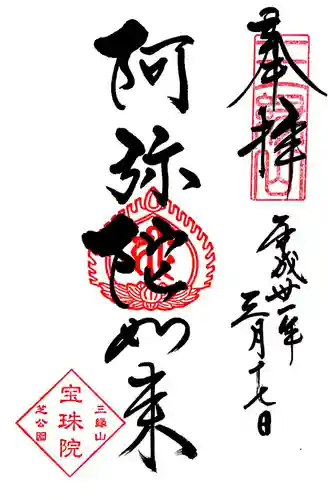 奉拝
平成卅一年
三月十七日
阿弥陀如来
三縁山
宝珠院
芝公園